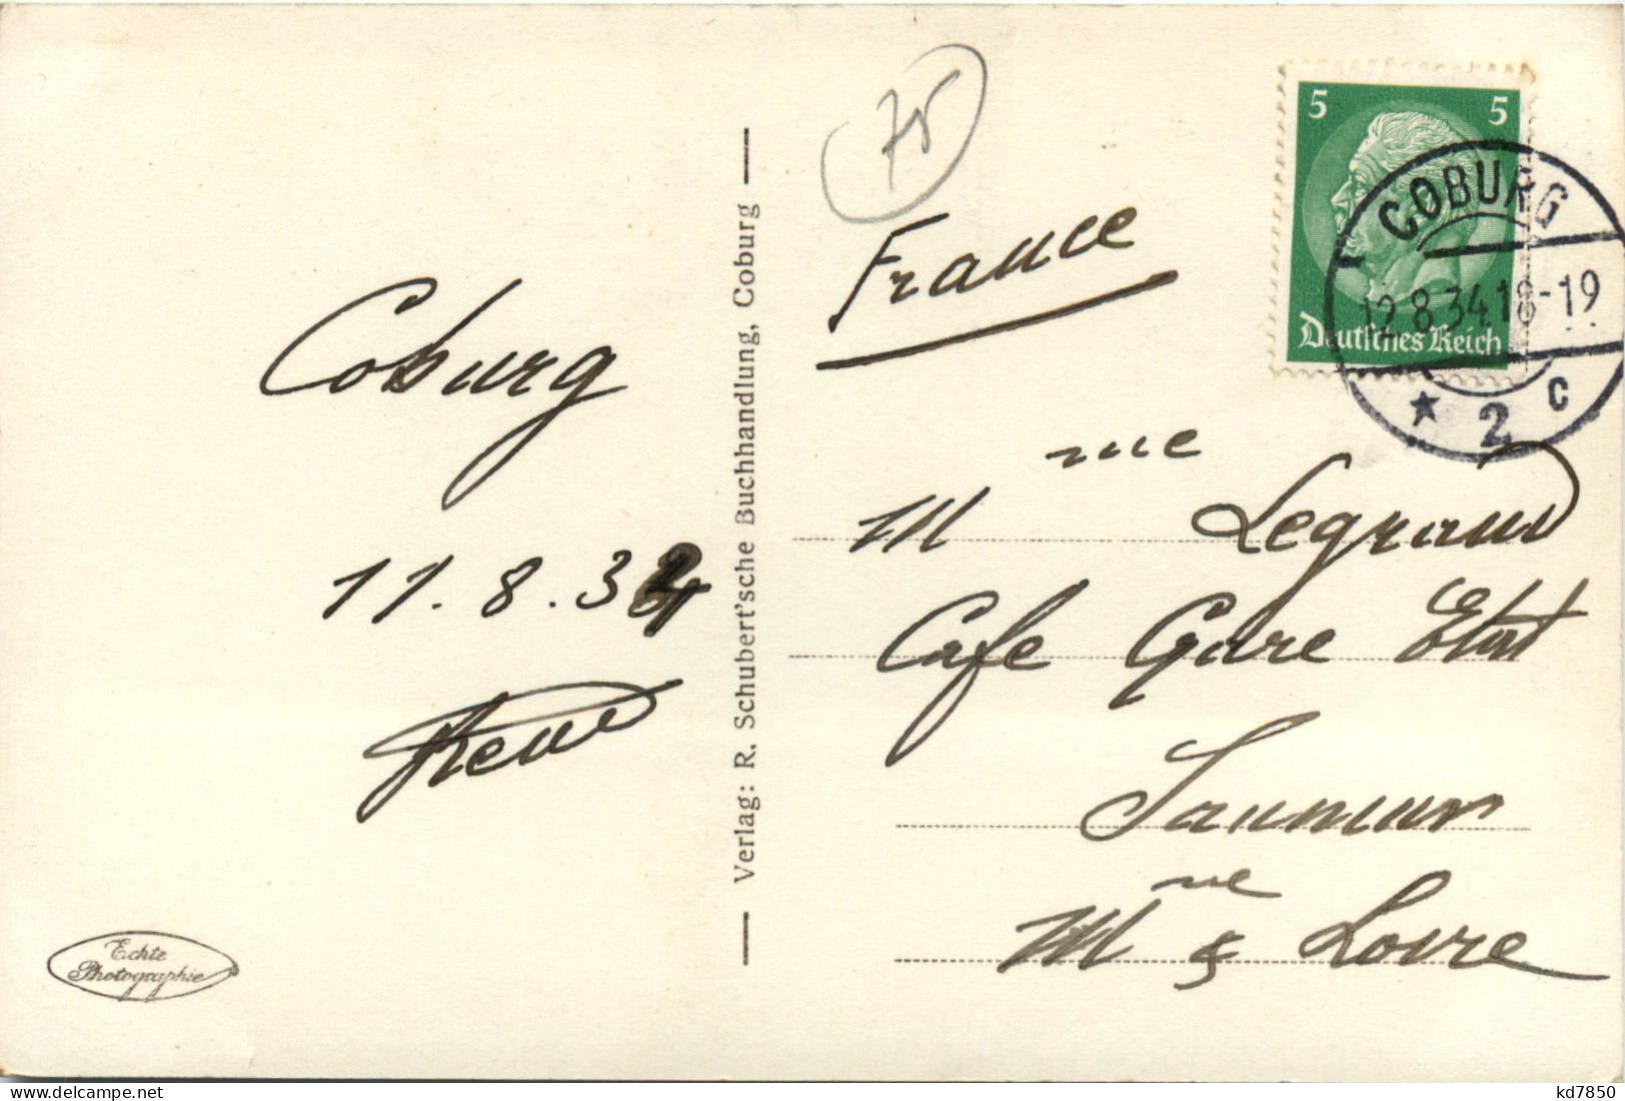 Coburg
11.8.34
René
Echte
Photographie
Verlag: R. Schubert'sche Buchhandlung, Coburg
75
France
5 5
Deutsches Reich
COBURG
12.8.34.18-19
★ 2 c
Mme Legrand
Cafe Gare Etat
Saumur
Mne & Loire
delcampe.net
kd7850